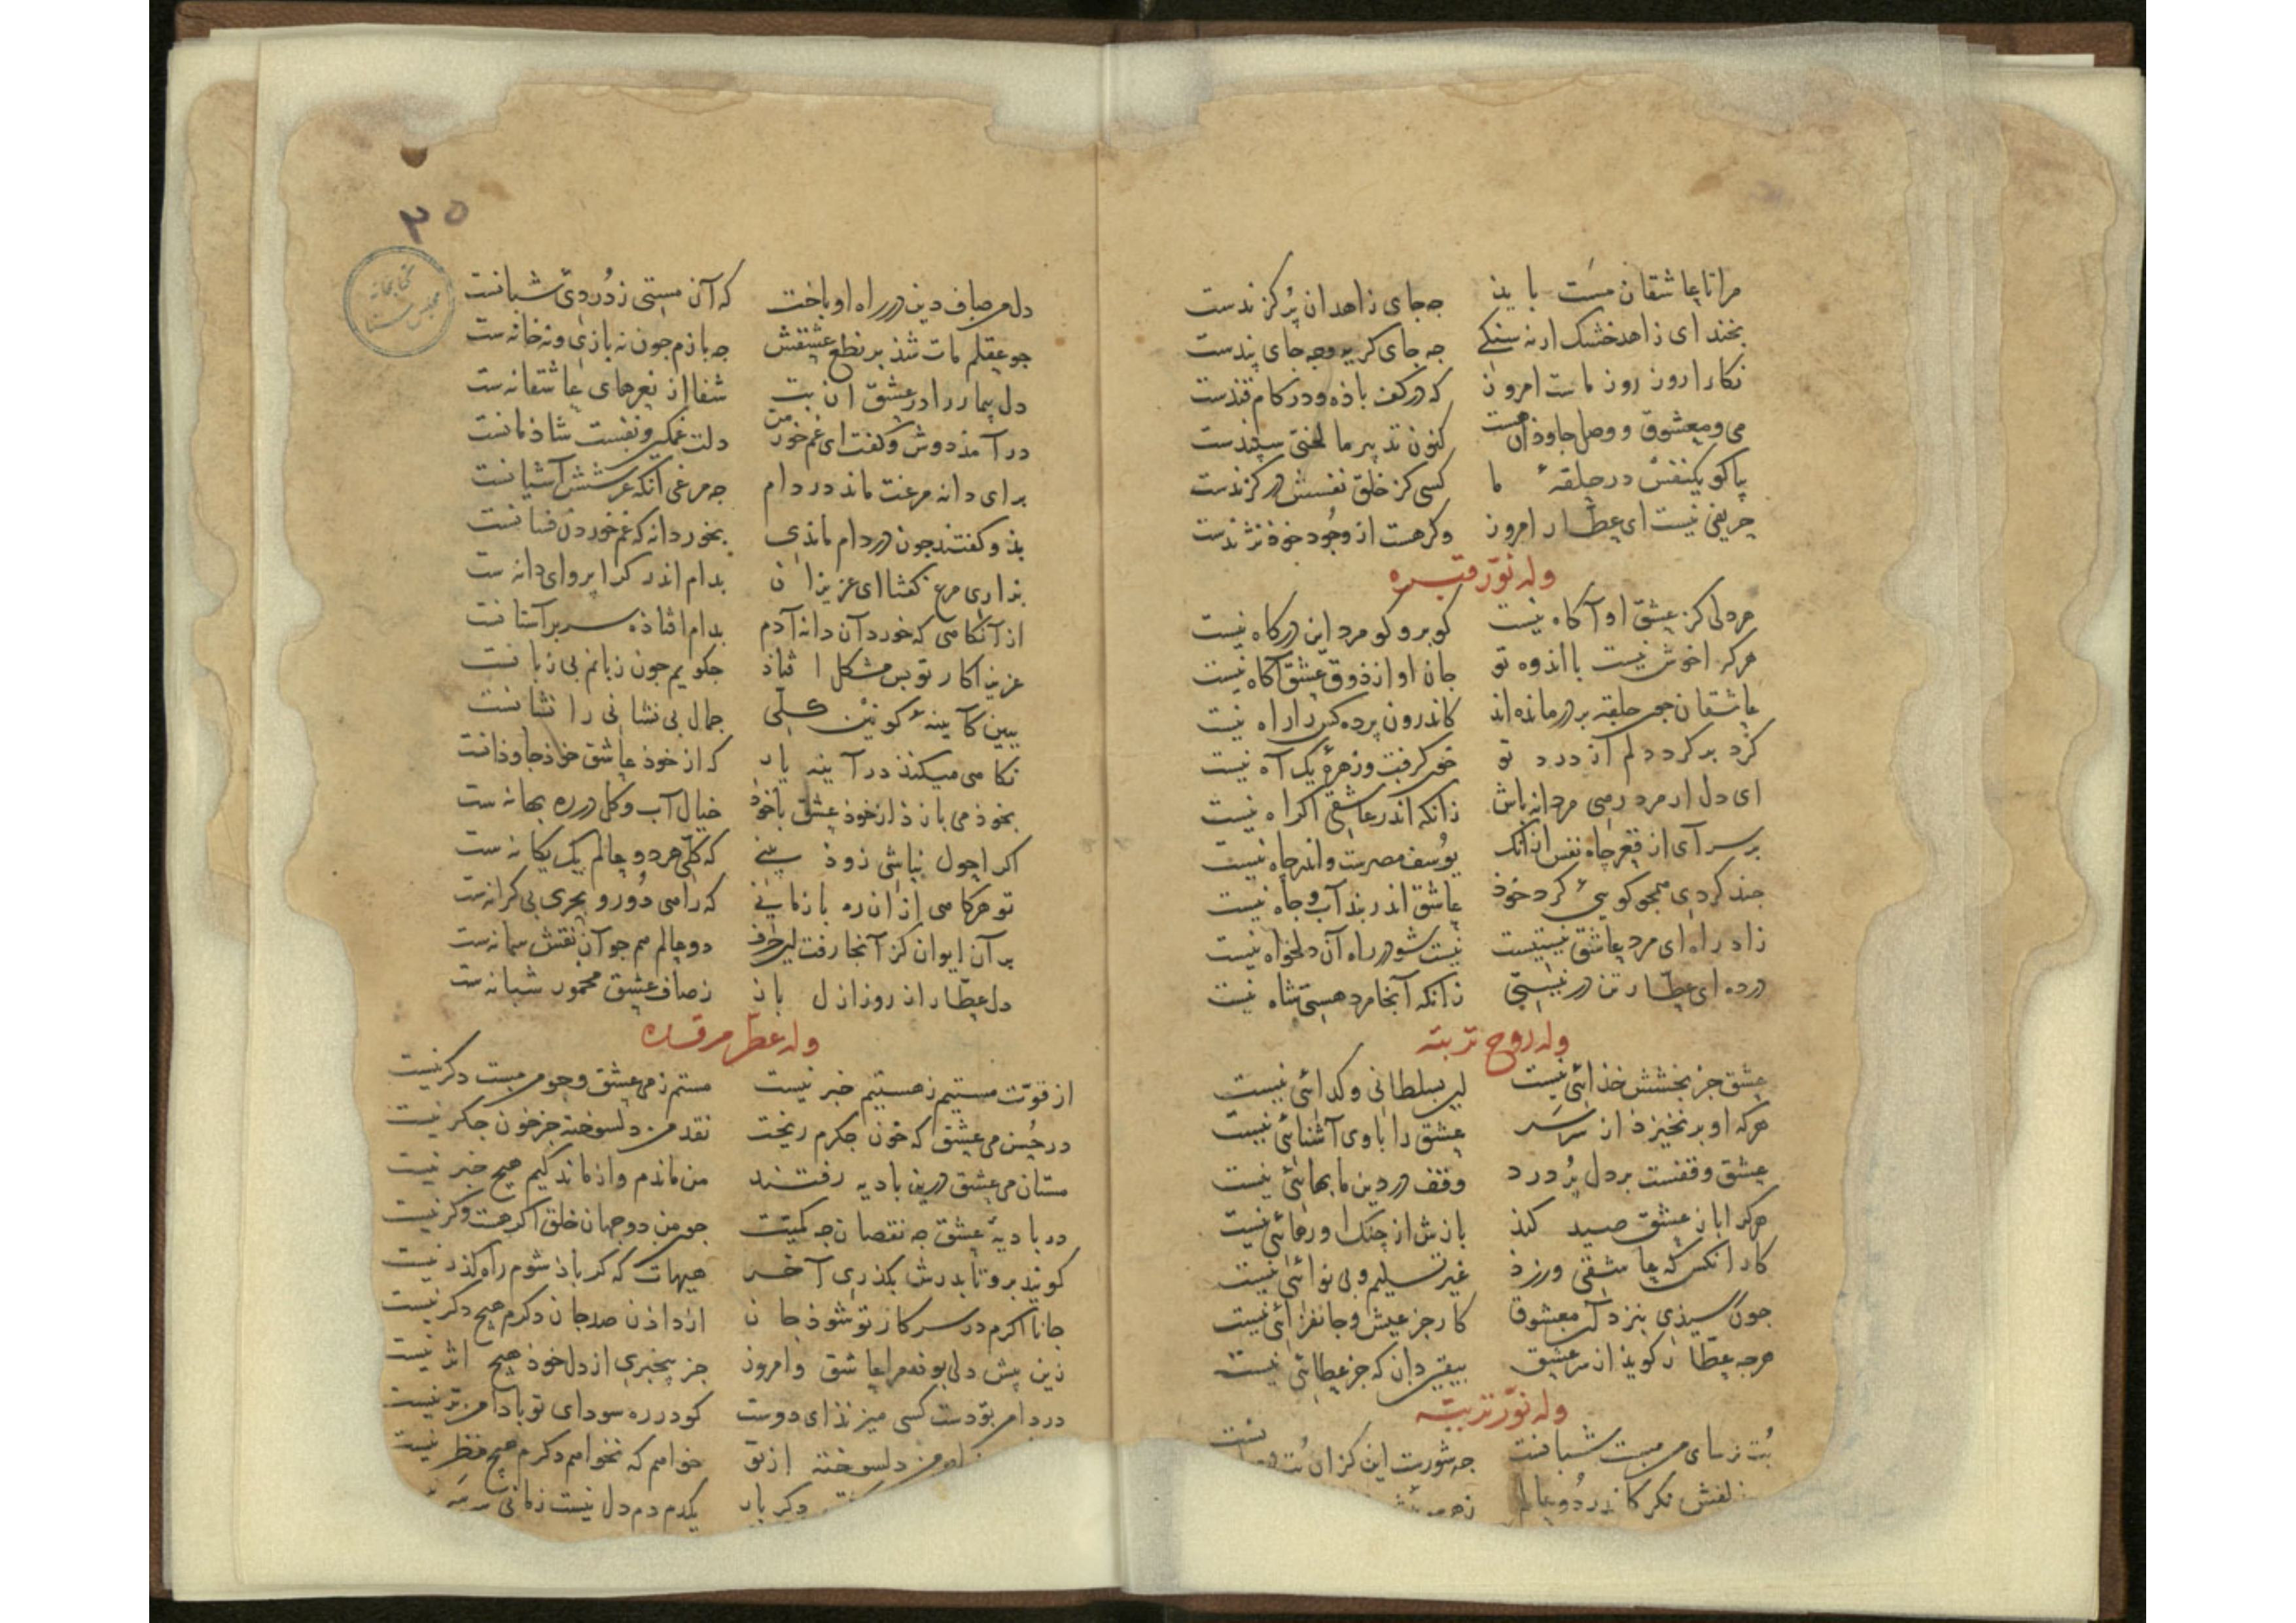 مرا تا عاشقان مست باید چه جای زاهدان پر گزندست
بخند ای زاهد خشک ار نه سنگی چه جای گریه و چه جای پندست
نکارا روز روز ماست امروز که در کف باذه و در کام قندست
می و معشوق و وصل جاوذان هست کنون تدبیر ما لختی سپندست
یکنفس در حلقهٔ ما کسی کز خلق نفسش در کزندست
حریفی نیست ای عطار امروز وکر هست از وجود خوذ نژندست
وله نور قبره
هر دلی کز عشق او آکاه نیست کو برو کو مرد این درکاه نیست
هرکرا خوش نیست با اندوه تو جان او از ذوق عشق آکاه نیست
عاشقان چون حلقه بر در مانده‌اند کاندرون پرده کس را راه نیست
کرد بر کرد دلم از درد تو خون کرفت و زهرهٔ یک آه نیست
ای دل ار مرد رهی مردانه باش زانکه اندر عاشقی اکراه نیست
بر سر آی از قعر چاه نفس از آنک یوسف مصریت و اندر چاه نیست
چند کردی همچو کویی کرد خوذ عاشق اندر بند آب و جاه نیست
زاد راه ای مرد عاشق نیستیست نیست شو در راه آن دلخواه نیست
درده ای عطار تن در نیستی زانکه آنجا مرد هستی شاه نیست
وله روح تربته
عشق جز بخشش خذائی نیست این بسلطانی و کدائی نیست
هرکه او برنخیزذ از سر سر عشق را با وی آشنائی نیست
عشق وقفست بر دل پر درد وقف در دین ما بهائی نیست
هرکرا باز عشق صید کند بازش از چنک او رهائی نیست
کار آنکس که عاشقی ورزد غیر تسلیم و بی نوائی نیست
چون رسیذی بنزد آن معشوق کار جز عیش و جانفزائی نیست
هرچه عطار کویذ از سر عشق بیقین دان که جز عطائی نیست
وله نور تربته
بت ترسای من مست شبانست چه شورست این کزان بت
زلفش نکر کاندر دو عالم
۲۵
کتابخانه مجلس سنا
دل من صاف دین در راه او باخت که آن مستی ز دردی شبانست
چو عقلم مات شذ بر نطع عشقش چه بازم چون نه بازی و نه خانه‌ست
دل بیمار را در عشق ان بت شفا از نعرهای عاشقانه‌ست
در آمذ دوش و کفت ای غم خور من دلت غمکین و نفست شاذمانست
برای دانه مرغت ماند در دام چه مرغی آنکه عرشش آشیانست
بذو کفتند چون در دام ماندی بخور دانه که غم خوردن فسانست
بنداری مرغ کفتا ای عزیزان بدام اندر کرا پروای دانه‌ست
از آنکاهی که خورد آن دانه آدم بدام افتاذه سر بر آستانست
عزیزا کار تو بس مشکل افتاذ چکویم چون زبانم بی زبانست
ببین کآیینهٔ کونین کلی جمال بی نشانی را نشانست
نکاهی میکنذ در آینه یار که از خوذ عاشق خوذ جاوذانست
بخوذ می بازذ از خوذ عشق باخوذ خیال آب و کل در ره بهانه‌ست
اکر احول نباشی زوذ بینی که کلی هر دو عالم یک یکانه‌ست
تو هرکاهی از ان ره باز مانی که راهی دور و بحری بی کرانه‌ست
بر آن ایوان کز آنجا رفت این حرف دو عالم هم چو آن نقش سمانه‌ست
دل عطار از روز ازل باز ز صاف عشق مخمور شبانه‌ست
وله عطر مرقده
از قوت مستیم ز هستیم خبر نیست مستم ز می عشق و چو من مست دکر نیست
در جشن می عشق که خون جکرم ریخت نقد من دلسوخته جز خون جکر نیست
مستان می عشق درین بادیه رفتند من ماندم و از ماندکیم هیچ خبر نیست
در بادیهٔ عشق چه نقصان چه کمیت چون من دو جهان خلق اکر هست وکر نیست
کویند برو تا بدرش بکذری آخر هیهات که کر باذ شوم راه کذر نیست
جانا اکرم در سر کار تو شوذ جان از داذن صد جان دکرم هیچ دکر نیست
زین پیش دلی بوذ مرا عاشق و امروز جز بیخبری از دل خوذ هیچ اثر نیست
در دامن تو دست کسی میزنذ ای دوست کو در ره سودای تو با دامن تر نیست
من دلسوخته از تو خواهم که نخواهم دکرم هیچ نظر نیست
دکر بار یکدم دم دل نیست زمانی